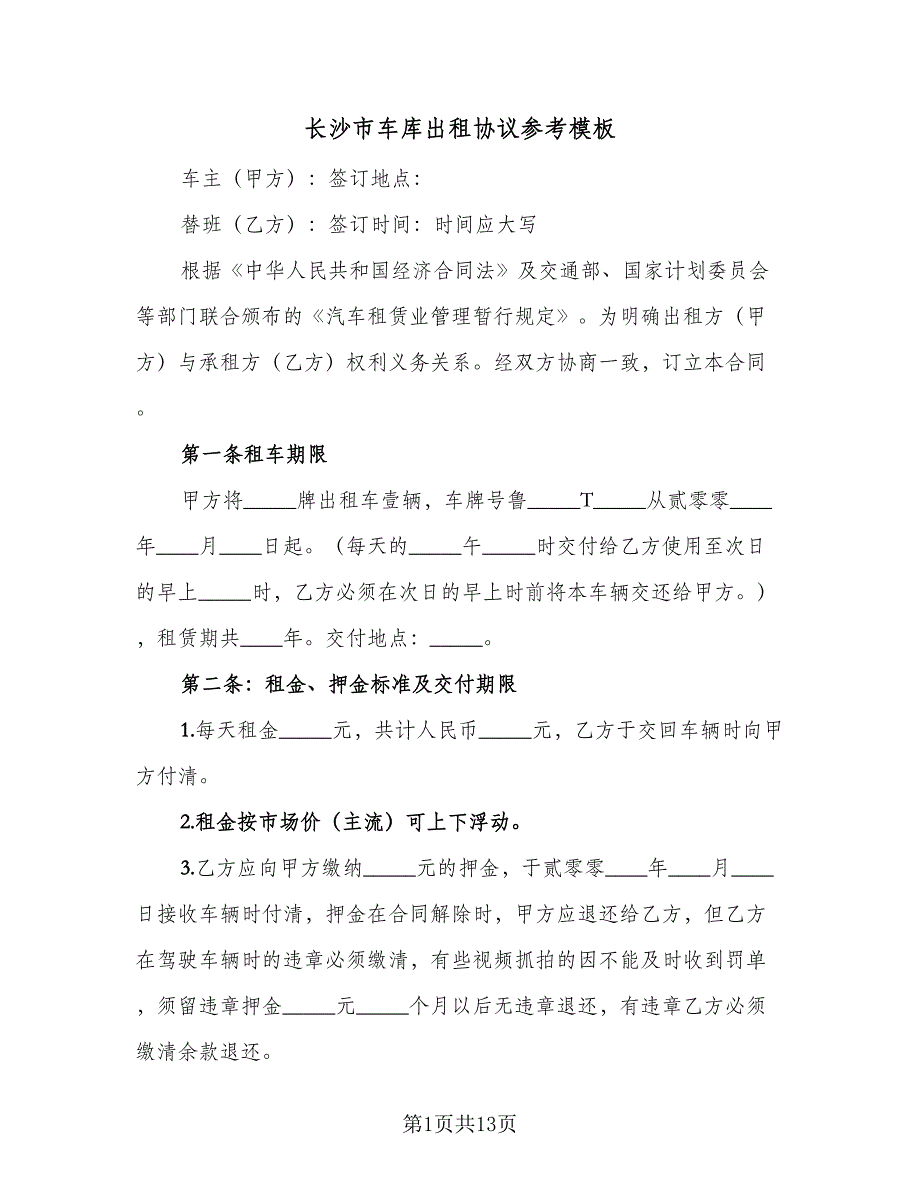 长沙市车库出租协议参考模板
车主（甲方）：签订地点：
替班（乙方）：签订时间：时间应大写
根据《中华人民共和国经济合同法》及交通部、国家计划委员会
等部门联合颁布的《汽车租赁业管理暂行规定》。为明确出租方（甲
方）与承租方（乙方）权利义务关系。经双方协商一致，订立本合同
。
第一条租车期限
甲方将_____牌出租车壹辆，车牌号鲁_____T_____从贰零零____
年____月____日起。（每天的_____午_____时交付给乙方使用至次日
的早上_____时，乙方必须在次日的早上时前将本车辆交还给甲方。）
，租赁期共____年。交付地点：_____。
第二条：租金、押金标准及交付期限
1.每天租金_____元，共计人民币_____元，乙方于交回车辆时向甲
方付清。
2.租金按市场价（主流）可上下浮动。
3.乙方应向甲方缴纳_____元的押金，于贰零零____年____月____
日接收车辆时付清，押金在合同解除时，甲方应退还给乙方，但乙方
在驾驶车辆时的违章必须缴清，有些视频抓拍的因不能及时收到罚单
，须留违章押金_____元_____个月以后无违章退还，有违章乙方必须
缴清余款退还。
第1页共13页